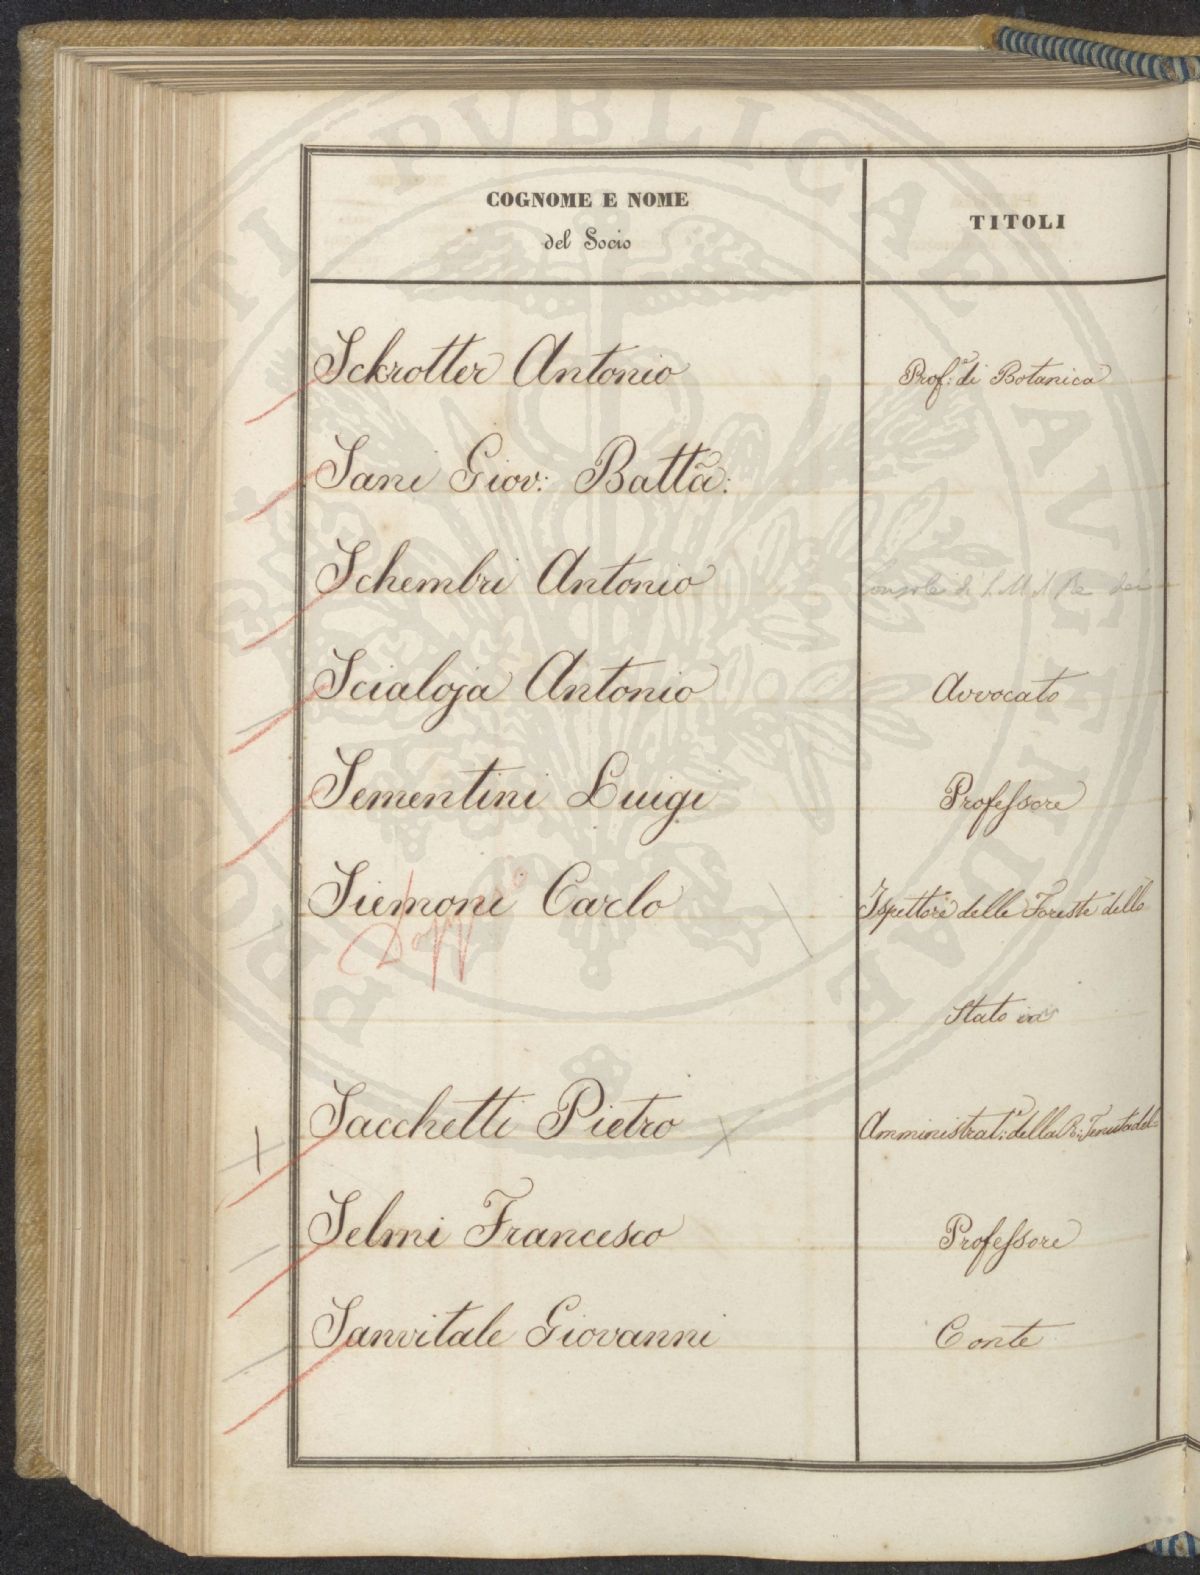 PROSPERITATI PUBLICAE AUGENDAE
COGNOME E NOME
del Socio
TITOLI
Sckrotter Antonio Prof.e di Botanica
Sani Giov: Batta:
Schembri Antonio Console di S. M. il Re dei
Scialoja Antonio Avvocato
Sementini Luigi Professore
Siemoni Carlo Ispettore delle Foreste dello
Doppio
Stato
Sacchetti Pietro Amministrat.e della R: Tenuta del-
Selmi Francesco Professore
Sanvitale Giovanni Conte